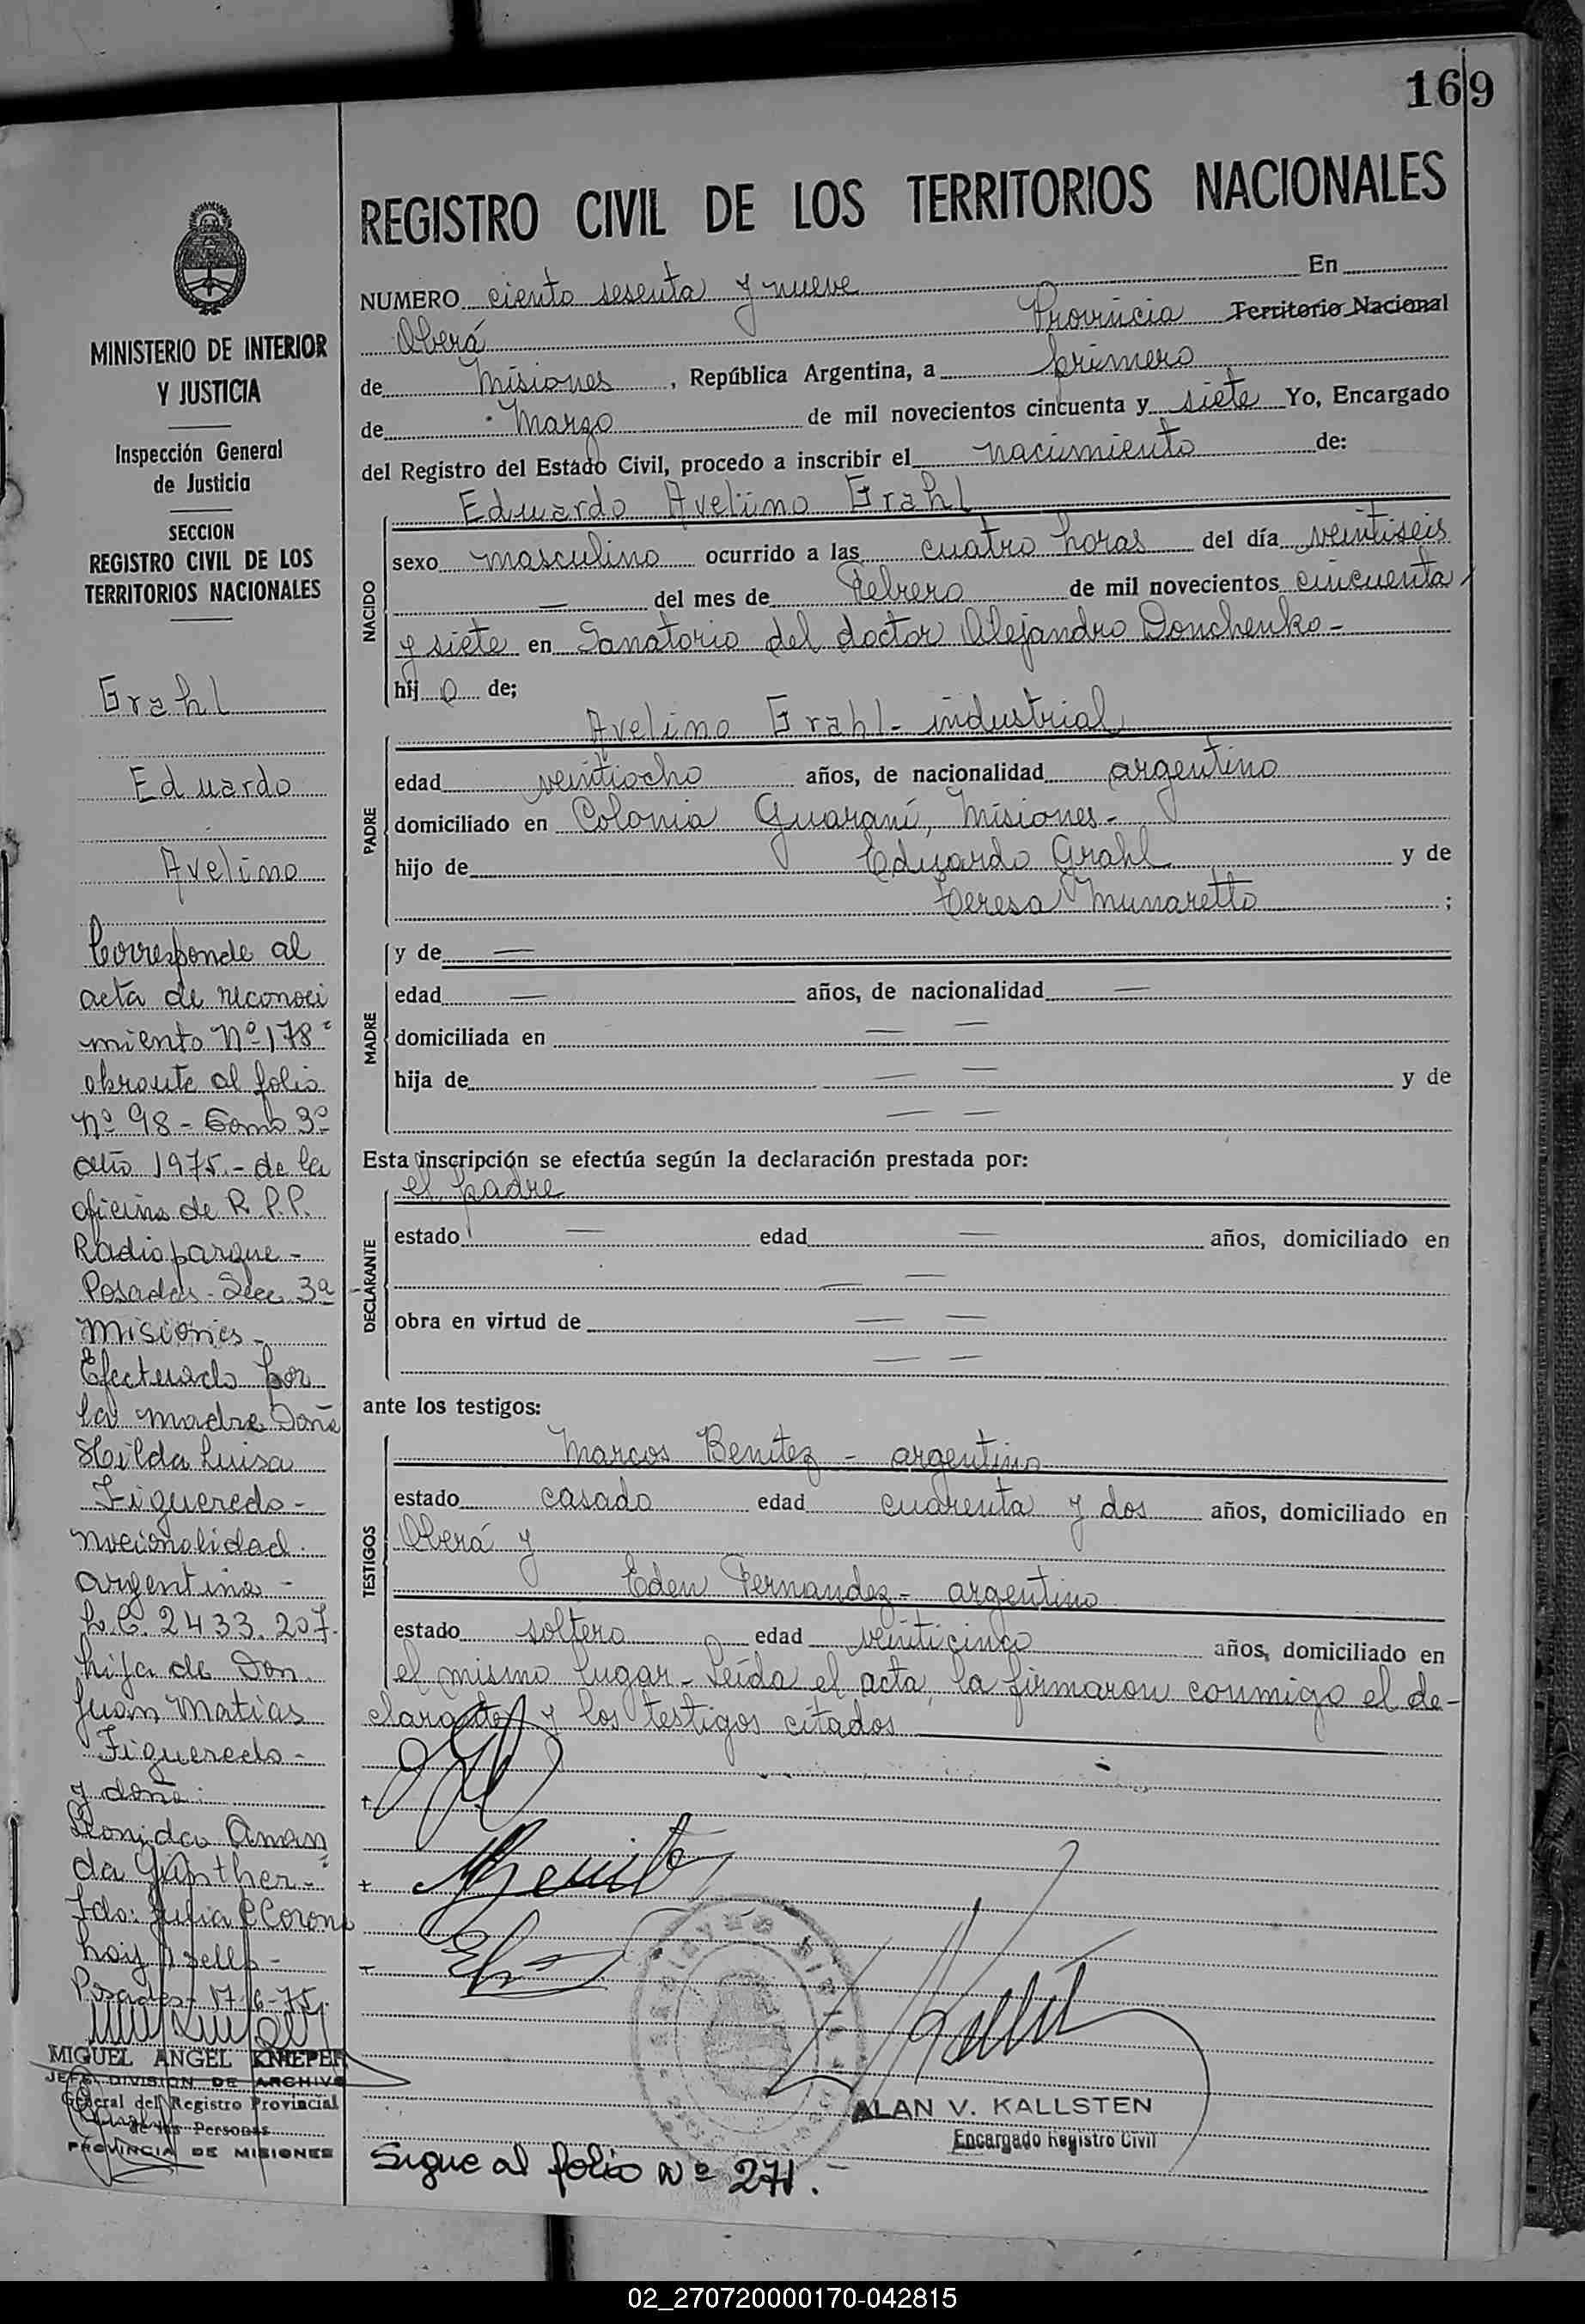 169
REGISTRO CIVIL DE LOS TERRITORIOS NACIONALES
NUMERO ciento sesenta y nueve En
Oberá Provincia Territorio Nacional
de Misiones, República Argentina, a primero
de Marzo de mil novecientos cincuenta y siete Yo, Encargado
del Registro del Estado Civil, procedo a inscribir el nacimiento de:
NACIDO
Eduardo Avelino Grahl
sexo masculino ocurrido a las cuatro horas del día veintiseis
— del mes de Febrero de mil novecientos cincuenta
y siete en Sanatorio del doctor Alejandro Donchenko-
hij o de;
PADRE
Avelino Grahl - industrial
edad veintiocho años, de nacionalidad argentino
domiciliado en Colonia Guaraní, Misiones-
hijo de Eduardo Grahl y de
Teresa Munaretto ;
MADRE
y de —
edad — años, de nacionalidad —
domiciliada en — —
hija de — — y de
— —
Esta inscripción se efectúa según la declaración prestada por:
DECLARANTE
el padre
estado — edad — años, domiciliado en
— —
obra en virtud de — —
— —
ante los testigos:
TESTIGOS
Marcos Benitez - argentino
estado casado edad cuarenta y dos años, domiciliado en
Oberá y
Eden Fernandez - argentino
estado soltero edad veinticinco años, domiciliado en
el mismo lugar - Leída el acta, la firmaron conmigo el de-
clarante y los testigos citados
ALAN V. KALLSTEN
Encargado Registro Civil
Sigue al folio Nº 271.-
MINISTERIO DE INTERIOR
Y JUSTICIA
Inspección General
de Justicia
SECCION
REGISTRO CIVIL DE LOS
TERRITORIOS NACIONALES
Grahl
Eduardo
Avelino
Corresponde al
acta de reconoci
miento Nº 178-
obrante al folio
Nº 98 - Tomo 3º
año 1975.- de la
oficina de R.P.P.
Radioparque -
Posadas - Secc 3ª
Misiones -
Efectuado por
la madre Doña
Hilda Luisa
Figueredo -
nacionalidad
argentina -
L.C. 2433.207.
hija de Don
Juan Matias
Figueredo -
y doña:
Leonida Aman
da Günther -
Fdo: Julia C Corone
hay sello -
Posadas - 17-6-75
MIGUEL ANGEL KNIEPER
JEFE DIVISION DE ARCHIVO
General del Registro Provincial
de las Personas
PROVINCIA DE MISIONES
02_270720000170-042815